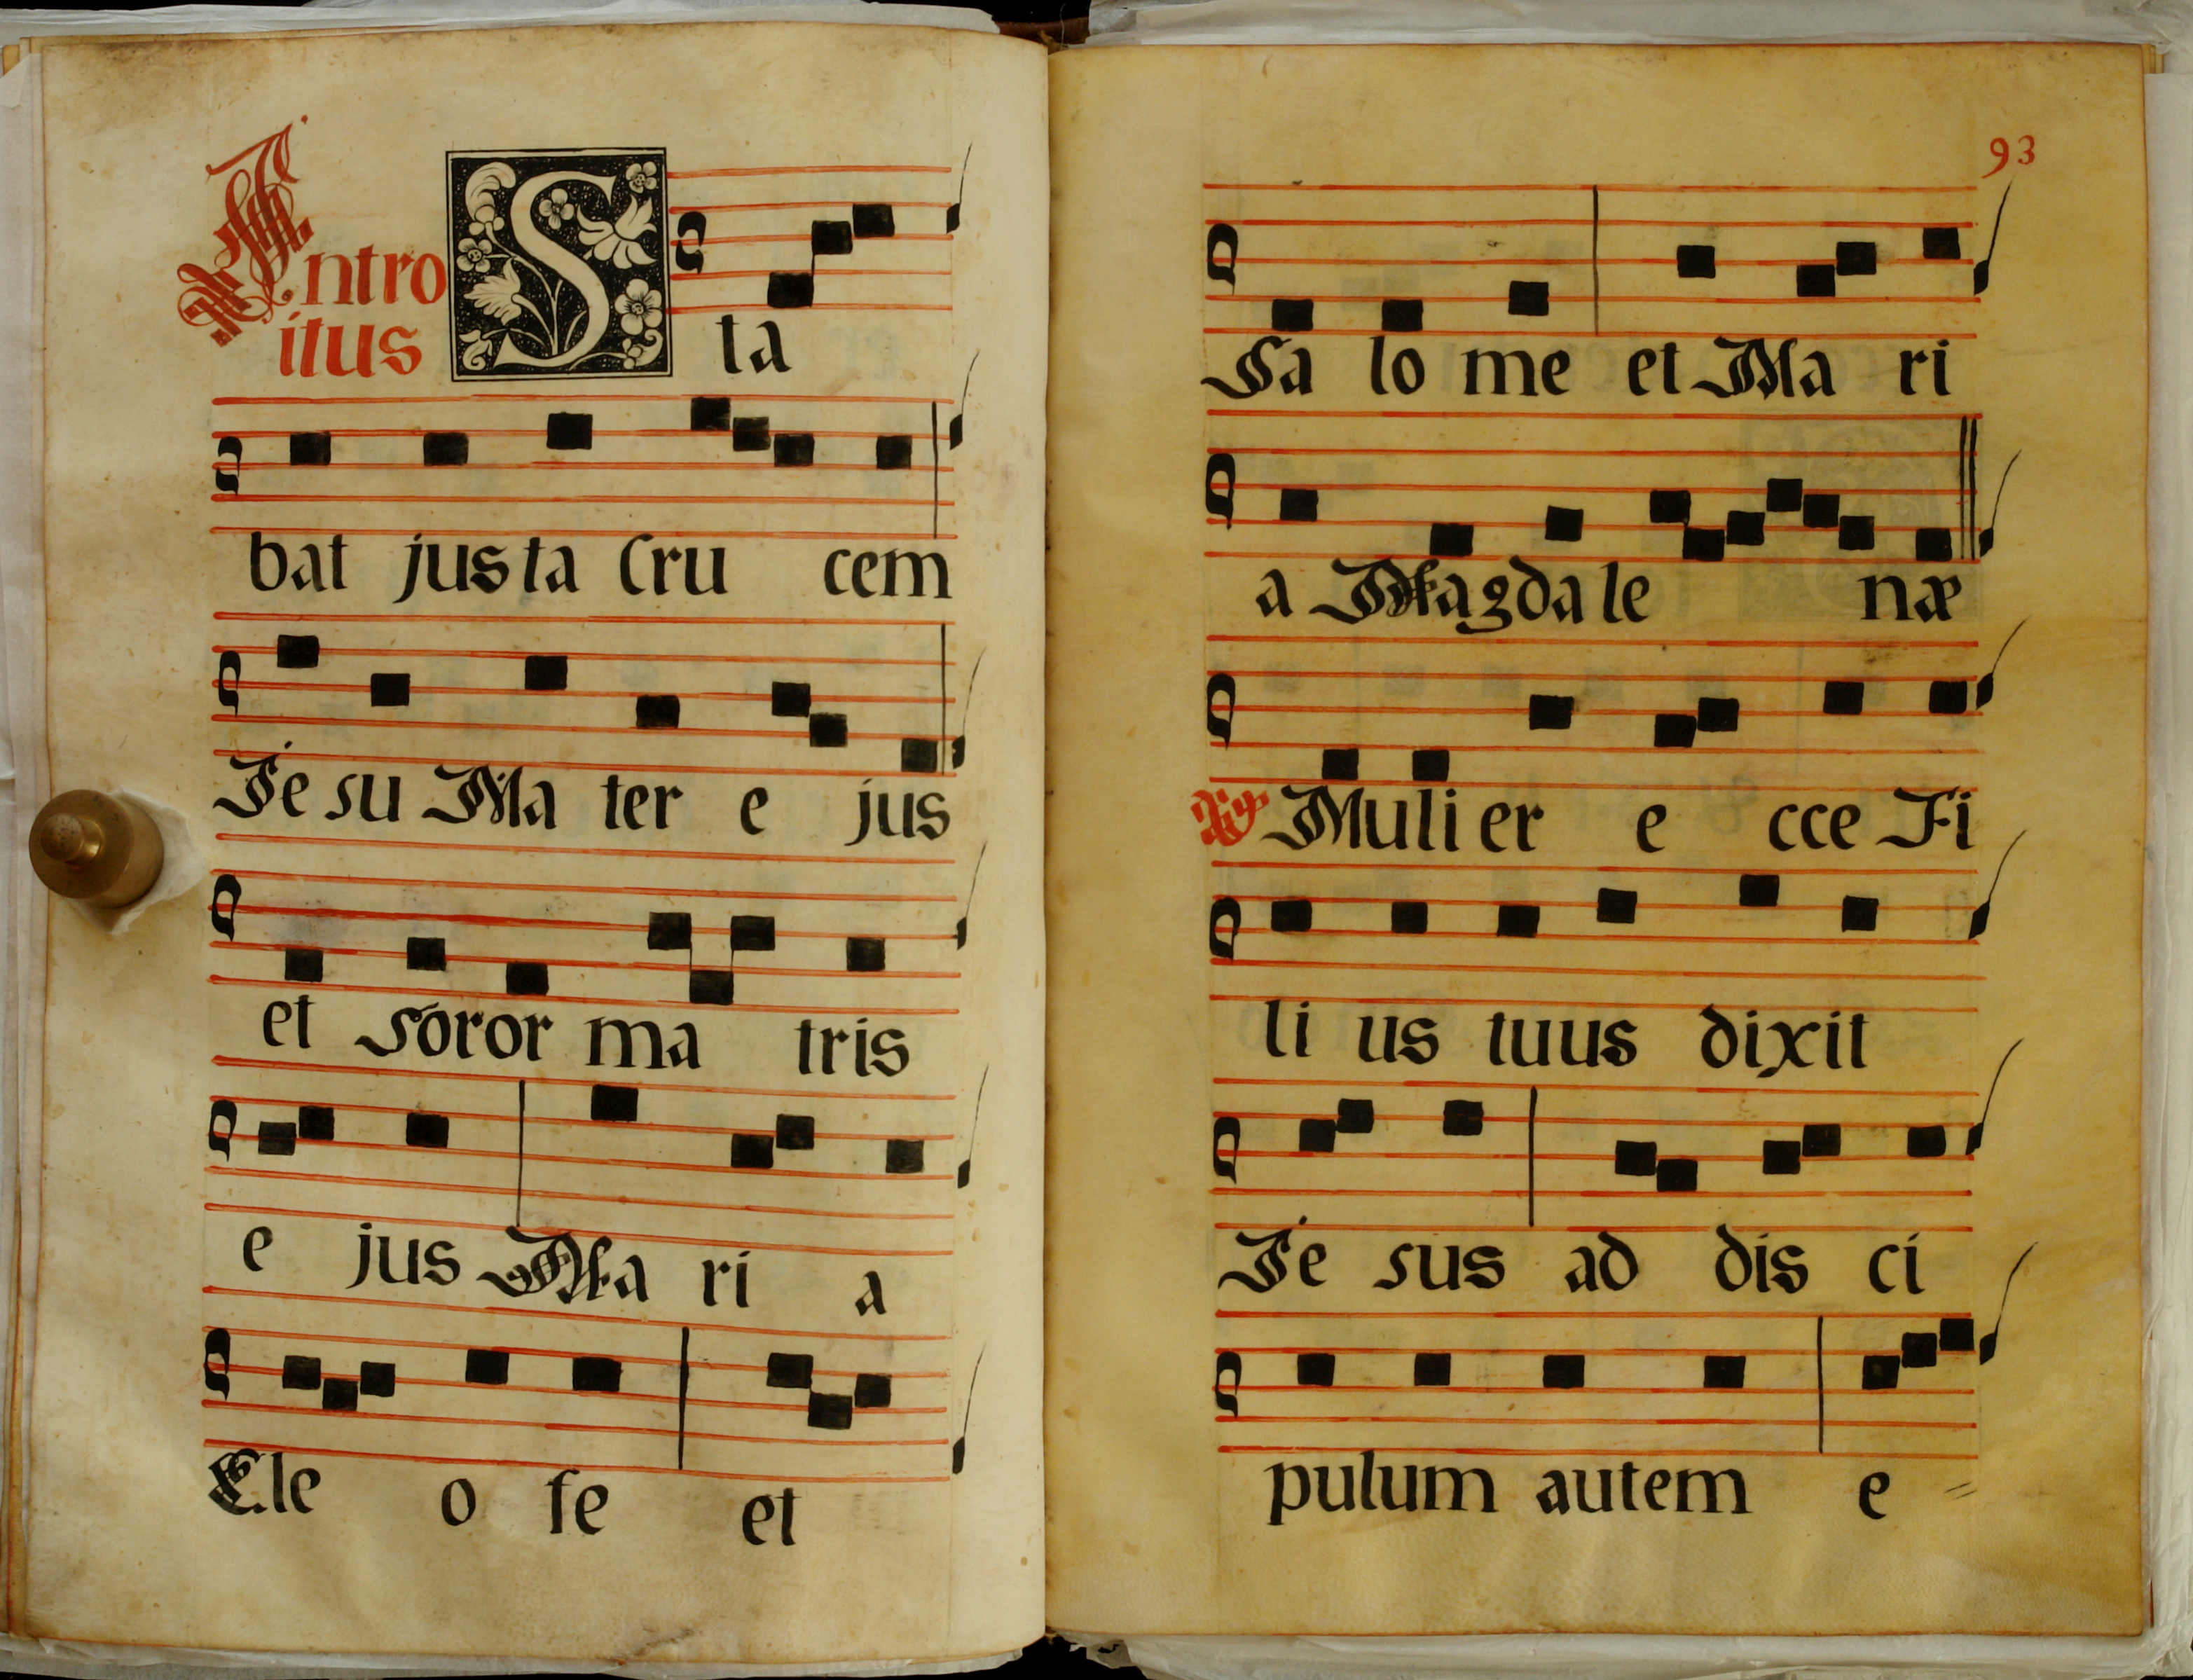 Intro
itus
S ta
bat justa Cru cem
Je su Ma ter e jus
et soror ma tris
e jus Ma ri a
Cle o fe et
93
Sa lo me et Ma ri
a Magda le næ
℣ Muli er e cce Fi
li us tuus dixit
Je sus ad dis ci
pulum autem e =